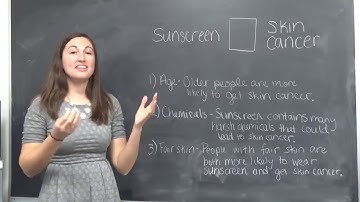 Sunscreen skin
cancer
1) Age- Older people are more
likely to get skin cancer.
2) Chemicals - Sunscreen contains many
harsh chemicals that could
lead to skin cancer
3) Fair skin- People with fair skin are
both more likely to wear
sunscreen and get skin cancer.